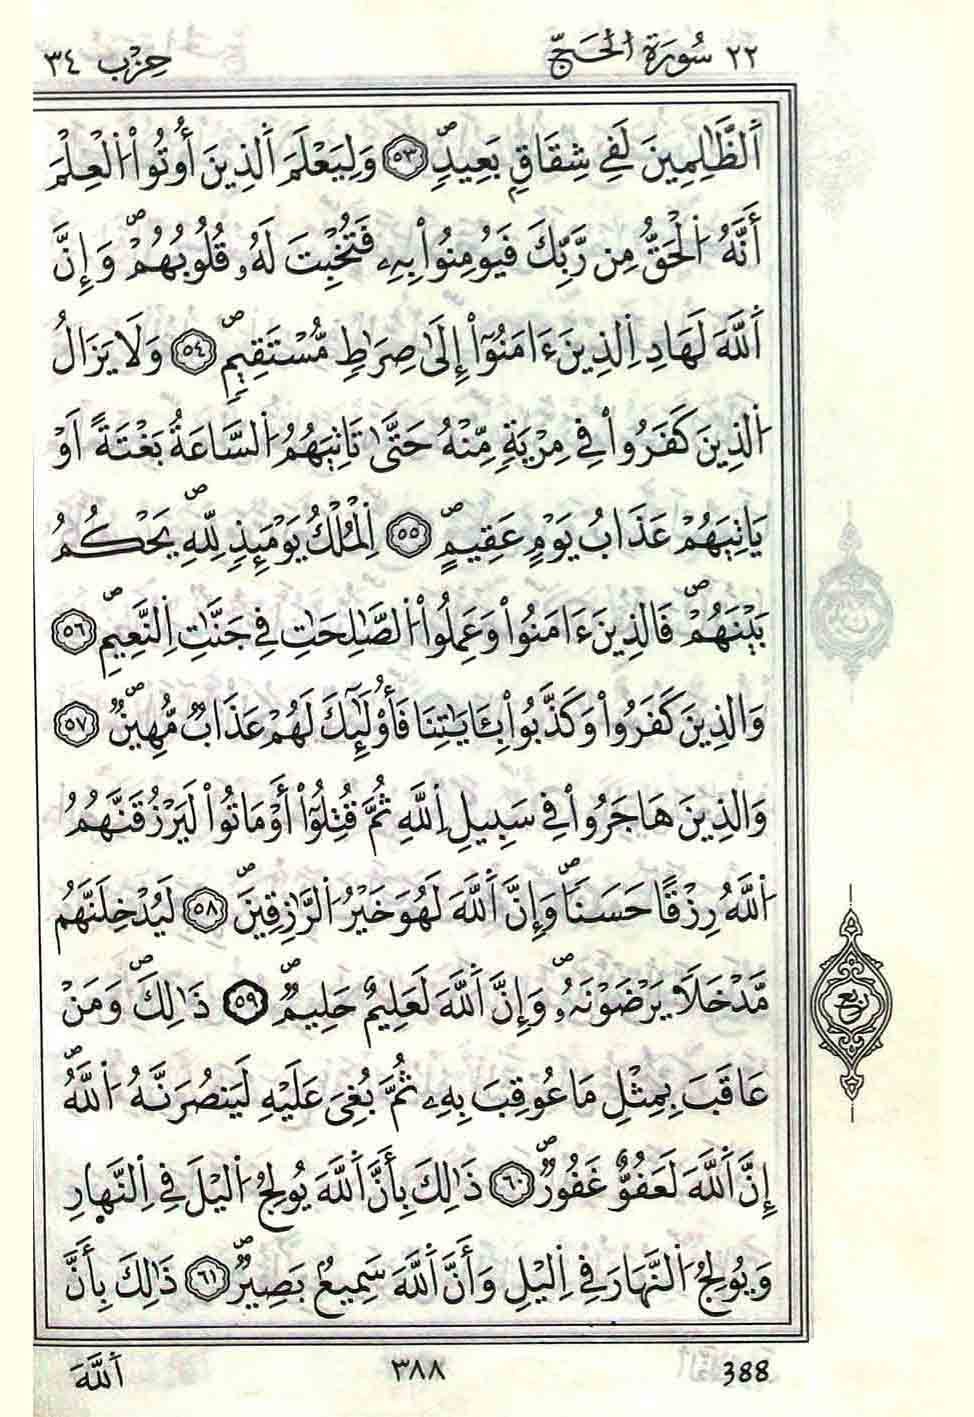 ٢٢ سُورَةُ الْحَجِّ حِزْب ٣٤
اَ۬لظَّٰلِمِينَ لَفِے شِقَاقِۢ بَعِيدٖۖ ٥٣ وَلِيَعْلَمَ اَ۬لذِينَ أُوتُواْ اُ۬لْعِلْمَ
أَنَّهُ اُ۬لْحَقُّ مِن رَّبِّكَ فَيُومِنُواْ بِهِۦ فَتُخْبِتَ لَهُۥ قُلُوبُهُمْۖ وَإِنَّ
اَ۬للَّهَ لَهَادِ اِ۬لذِينَ ءَامَنُوٓاْ إِلَىٰ صِرَٰطٖ مُّسْتَقِيمٖۖ ٥٤ وَلَا يَزَالُ
اُ۬لذِينَ كَفَرُواْ فِے مِرْيَةٖ مِّنْهُ حَتَّىٰ تَاتِيَهُمُ اُ۬لسَّاعَةُ بَغْتَةً اَوْ
يَاتِيَهُمْ عَذَابُ يَوْمٍ عَقِيمٍۖ ٥٥ اِ۬لْمُلْكُ يَوْمَئِذٖ لِّلهِۖ يَحْكُمُ
بَيْنَهُمْۖ فَالذِينَ ءَامَنُواْ وَعَمِلُواْ اُ۬لصَّٰلِحَٰتِ فِے جَنَّٰتِ اِ۬لنَّعِيمِۖ ٥٦
وَالذِينَ كَفَرُواْ وَكَذَّبُواْ بِـَٔايَٰتِنَا فَأُوْلَٰٓئِكَ لَهُمْ عَذَابٞ مُّهِينٞۖ ٥٧
وَالذِينَ هَاجَرُواْ فِے سَبِيلِ اِ۬للَّهِ ثُمَّ قُتِلُوٓاْ أَوْ مَاتُواْ لَيَرْزُقَنَّهُمُ
اُ۬للَّهُ رِزْقًا حَسَنٗاۖ وَإِنَّ اَ۬للَّهَ لَهُوَ خَيْرُ اُ۬لرَّٰزِقِينَۖ ٥٨ لَيُدْخِلَنَّهُم
مَّدْخَلٗا يَرْضَوْنَهُۥۖ وَإِنَّ اَ۬للَّهَ لَعَلِيمٌ حَلِيمٞۖ ٥٩ ذَٰلِكَۖ وَمَنْ
عَاقَبَ بِمِثْلِ مَا عُوقِبَ بِهِۦ ثُمَّ بُغِيَ عَلَيْهِ لَيَنصُرَنَّهُ اُ۬للَّهُۖ
إِنَّ اَ۬للَّهَ لَعَفُوٌّ غَفُورٞۖ ٦٠ ذَٰلِكَ بِأَنَّ اَ۬للَّهَ يُولِجُ اُ۬ليْلَ فِے اِ۬لنَّه۪ارِ
وَيُولِجُ اُ۬لنَّهَارَ فِے اِ۬ليْلِ وَأَنَّ اَ۬للَّهَ سَمِيعُۢ بَصِيرٞۖ ٦١ ذَٰلِكَ بِأَنَّ
ربع
اَ۬للَّهَ ٣٨٨ 388